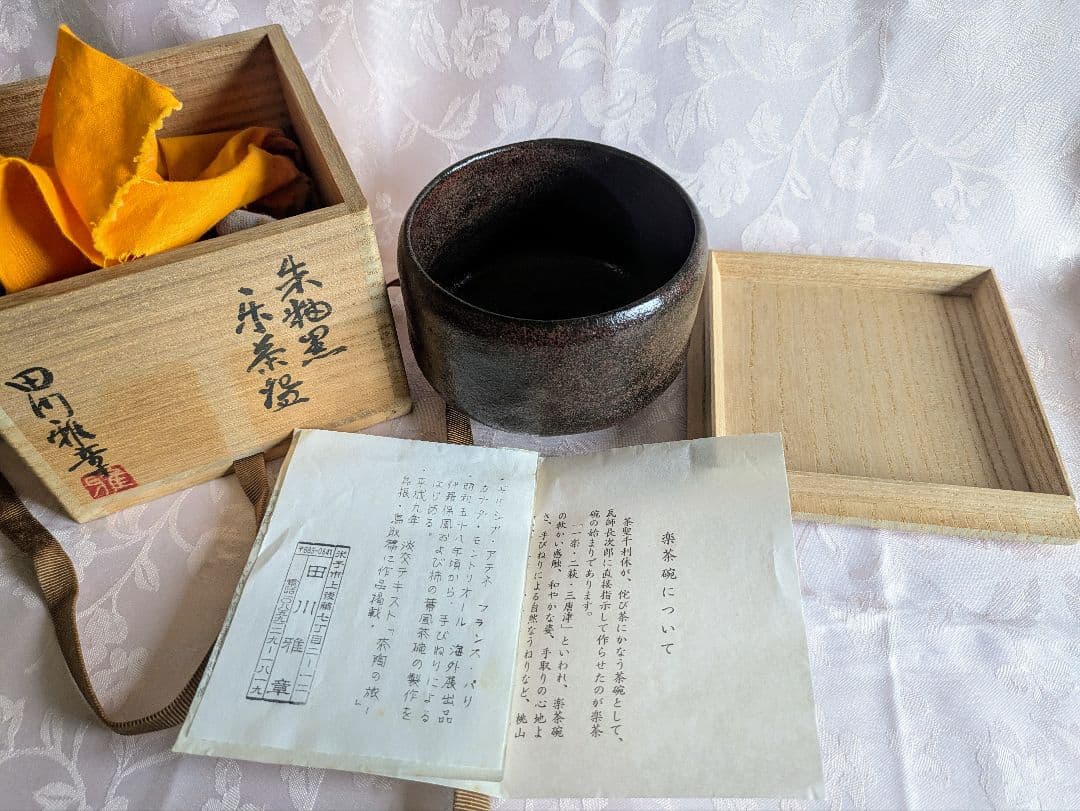 朱釉黒
楽茶盌
田川雅章
雅
楽茶碗について
茶聖千利休が、侘び茶にかなう茶碗として、
瓦師長次郎に直接指示して作らせたのが楽茶
碗の始まりであります。
「一楽・二萩・三唐津」といわれ、楽茶碗
の軟かい感触、和やかな姿、手取りの心地よ
さ、手びねりによる自然なうねりなど、桃山
・ギリシア・アテネ フランス・パリ
カナダ・モントリオール 海外展出品
・昭和五十八年頃から、手びねりによる
伊羅保風および柿の蔕風茶碗の製作を
はじめる。
・平成九年 淡交テキスト「茶陶の旅ー
島根・鳥取」に作品掲載・
〒683-0841
米子市上後藤七丁目二一一二
田川雅章
電話〇八五九二九一八一一九